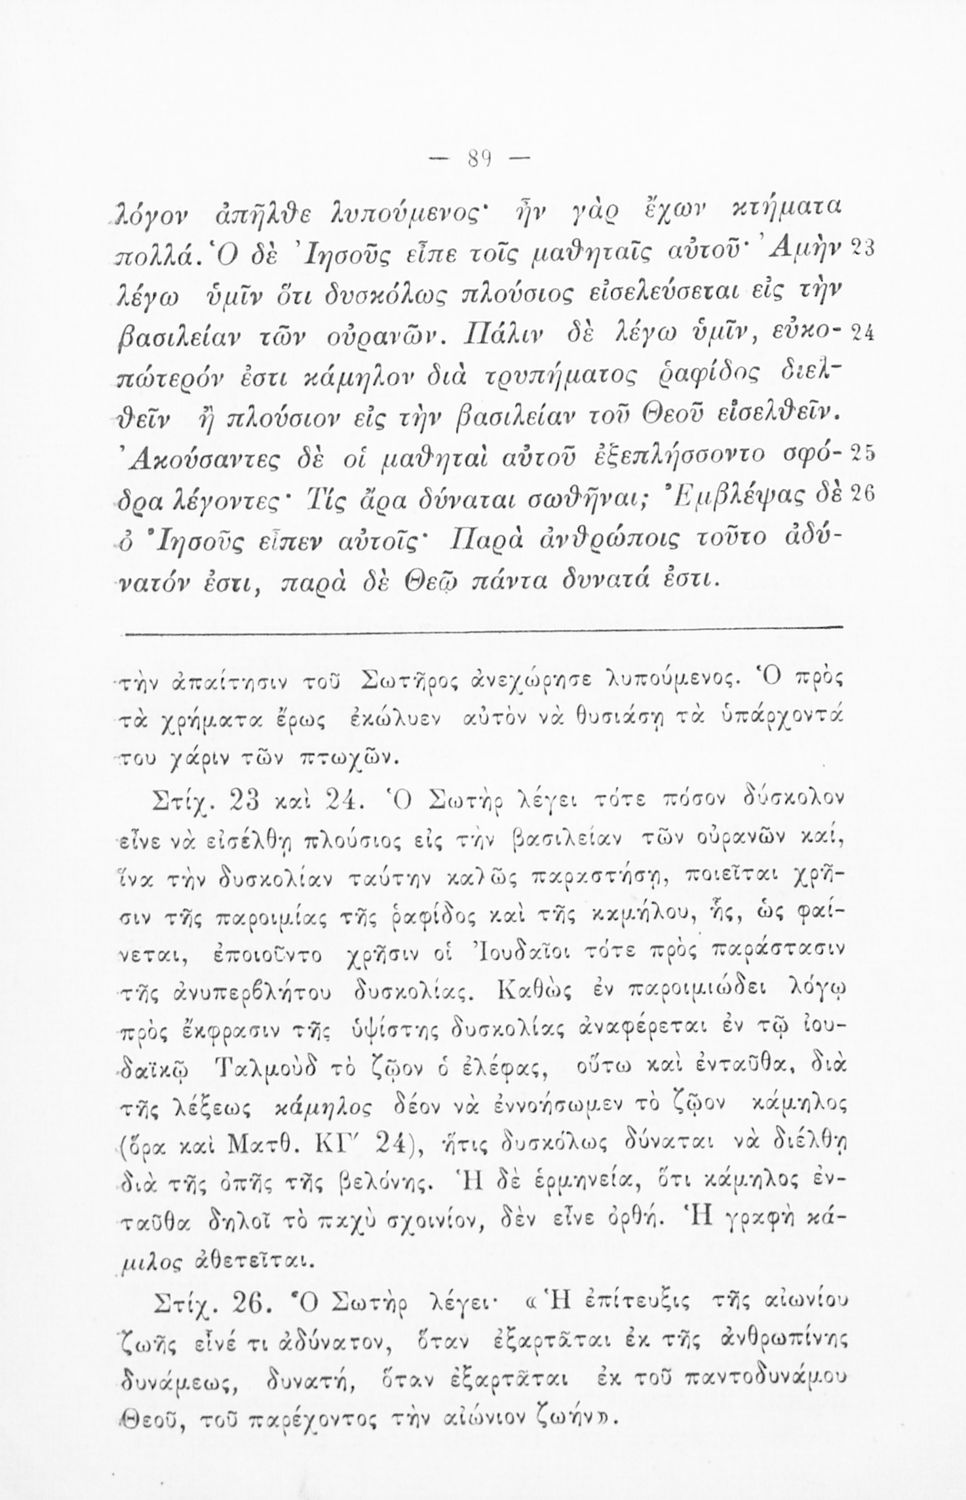 — 89 —
λόγον ἀπῆλθε λυπούμενος· ἦν γὰρ ἔχων κτήματα
πολλά. Ὁ δὲ Ἰησοῦς εἶπε τοῖς μαθηταῖς αὐτοῦ· Ἀμὴν 23
λέγω ὑμῖν ὅτι δυσκόλως πλούσιος εἰσελεύσεται εἰς τὴν
βασιλείαν τῶν οὐρανῶν. Πάλιν δὲ λέγω ὑμῖν, εὐκο- 24
πώτερόν ἐστι κάμηλον διὰ τρυπήματος ῥαφίδος διελ-
θεῖν ἢ πλούσιον εἰς τὴν βασιλείαν τοῦ Θεοῦ εἰσελθεῖν.
Ἀκούσαντες δὲ οἱ μαθηταὶ αὐτοῦ ἐξεπλήσσοντο σφό- 25
δρα λέγοντες· Τίς ἄρα δύναται σωθῆναι; Ἐμβλέψας δὲ 26
ὁ Ἰησοῦς εἶπεν αὐτοῖς· Παρὰ ἀνθρώποις τοῦτο ἀδύ-
νατόν ἐστι, παρὰ δὲ Θεῷ πάντα δυνατά ἐστι.
τὴν ἀπαίτησιν τοῦ Σωτῆρος ἀνεχώρησε λυπούμενος. Ὁ πρὸς
τὰ χρήματα ἔρως ἐκώλυεν αὐτὸν νὰ θυσιάσῃ τὰ ὑπάρχοντά
του χάριν τῶν πτωχῶν.
Στίχ. 23 καὶ 24. Ὁ Σωτὴρ λέγει τότε πόσον δύσκολον
εἶνε νὰ εἰσέλθῃ πλούσιος εἰς τὴν βασιλείαν τῶν οὐρανῶν καί,
ἵνα τὴν δυσκολίαν ταύτην καλῶς παραστήσῃ, ποιεῖται χρῆ-
σιν τῆς παροιμίας τῆς ῥαφίδος καὶ τῆς καμήλου, ἧς, ὡς φαί-
νεται, ἐποιοῦντο χρῆσιν οἱ Ἰουδαῖοι τότε πρὸς παράστασιν
τῆς ἀνυπερβλήτου δυσκολίας. Καθὼς ἐν παροιμιώδει λόγῳ
πρὸς ἔκφρασιν τῆς ὑψίστης δυσκολίας ἀναφέρεται ἐν τῷ ἰου-
δαϊκῷ Ταλμοὺδ τὸ ζῷον ὁ ἐλέφας, οὕτω καὶ ἐνταῦθα, διὰ
τῆς λέξεως κάμηλος δέον νὰ ἐννοήσωμεν τὸ ζῷον κάμηλος
(ὅρα καὶ Ματθ. ΚΓ′ 24), ἥτις δυσκόλως δύναται νὰ διέλθῃ
διὰ τῆς ὀπῆς τῆς βελόνης. Ἡ δὲ ἑρμηνεία, ὅτι κάμηλος ἐν-
ταῦθα δηλοῖ τὸ παχὺ σχοινίον, δὲν εἶνε ὀρθή. Ἡ γραφὴ κά-
μιλος ἀθετεῖται.
Στίχ. 26. Ὁ Σωτὴρ λέγει· «Ἡ ἐπίτευξις τῆς αἰωνίου
ζωῆς εἶνέ τι ἀδύνατον, ὅταν ἐξαρτᾶται ἐκ τῆς ἀνθρωπίνης
δυνάμεως, δυνατή, ὅταν ἐξαρτᾶται ἐκ τοῦ παντοδυνάμου
Θεοῦ, τοῦ παρέχοντος τὴν αἰώνιον ζωήν».